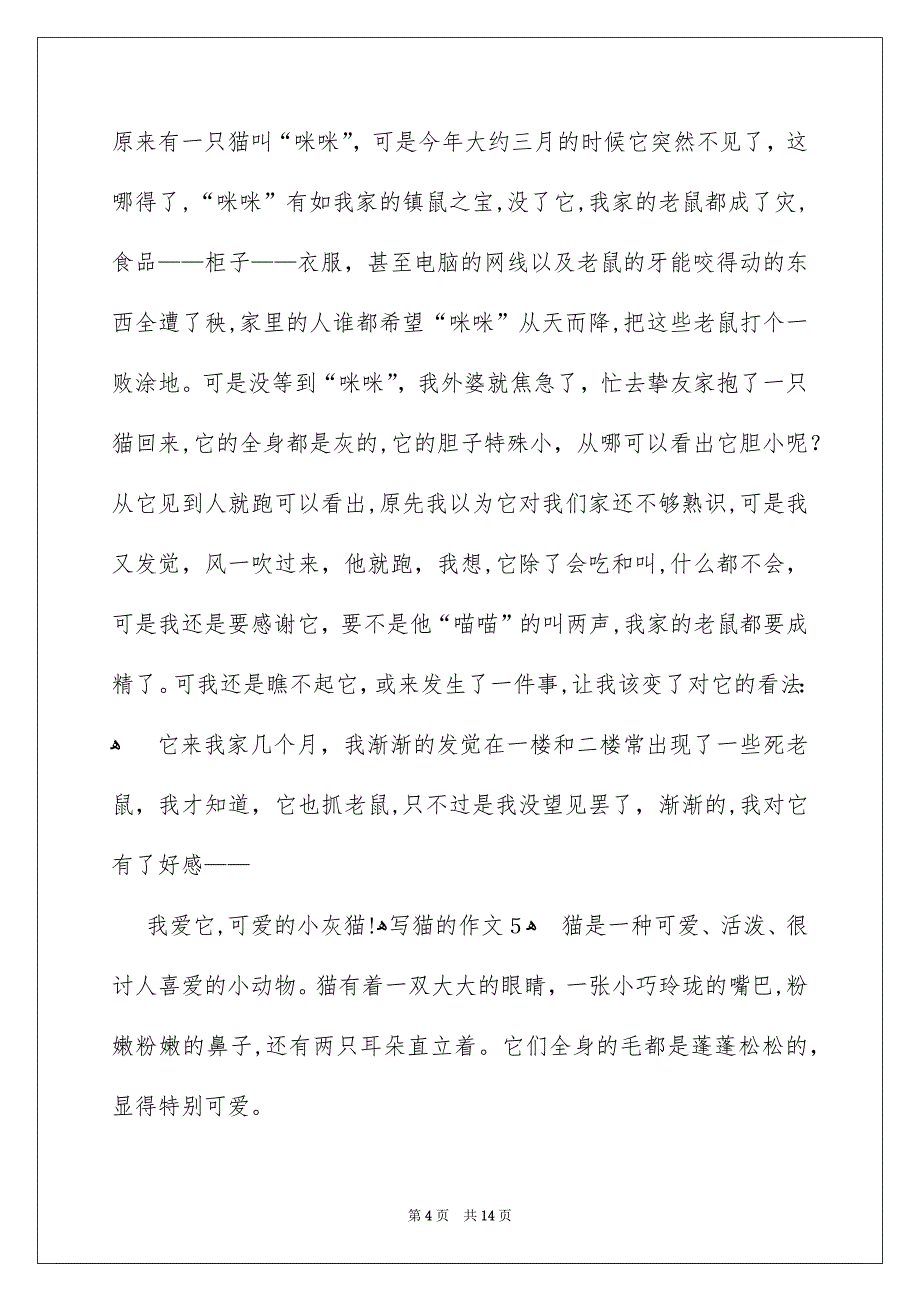 原来有一只猫叫“咪咪”，可是今年大约三月的时候它突然不见了，这
哪得了,“咪咪”有如我家的镇鼠之宝,没了它,我家的老鼠都成了灾,
食品——柜子——衣服，甚至电脑的网线以及老鼠的牙能咬得动的东
西全遭了秧,家里的人谁都希望“咪咪”从天而降,把这些老鼠打个一
败涂地。可是没等到“咪咪”，我外婆就焦急了，忙去挚友家抱了一只
猫回来,它的全身都是灰的,它的胆子特殊小，从哪可以看出它胆小呢?
从它见到人就跑可以看出,原先我以为它对我们家还不够熟识,可是我
又发觉，风一吹过来，他就跑，我想,它除了会吃和叫,什么都不会，
可是我还是要感谢它，要不是他“喵喵”的叫两声,我家的老鼠都要成
精了。可我还是瞧不起它，或来发生了一件事,让我该变了对它的看法:
ﻫ 它来我家几个月，我渐渐的发觉在一楼和二楼常出现了一些死老
鼠，我才知道，它也抓老鼠,只不过是我没望见罢了，渐渐的,我对它
有了好感——
我爱它,可爱的小灰猫!ﻫ写猫的作文5ﻫ 猫是一种可爱、活泼、很
讨人喜爱的小动物。猫有着一双大大的眼睛，一张小巧玲珑的嘴巴,粉
嫩粉嫩的鼻子,还有两只耳朵直立着。它们全身的毛都是蓬蓬松松的，
显得特别可爱。
第4页 共14页